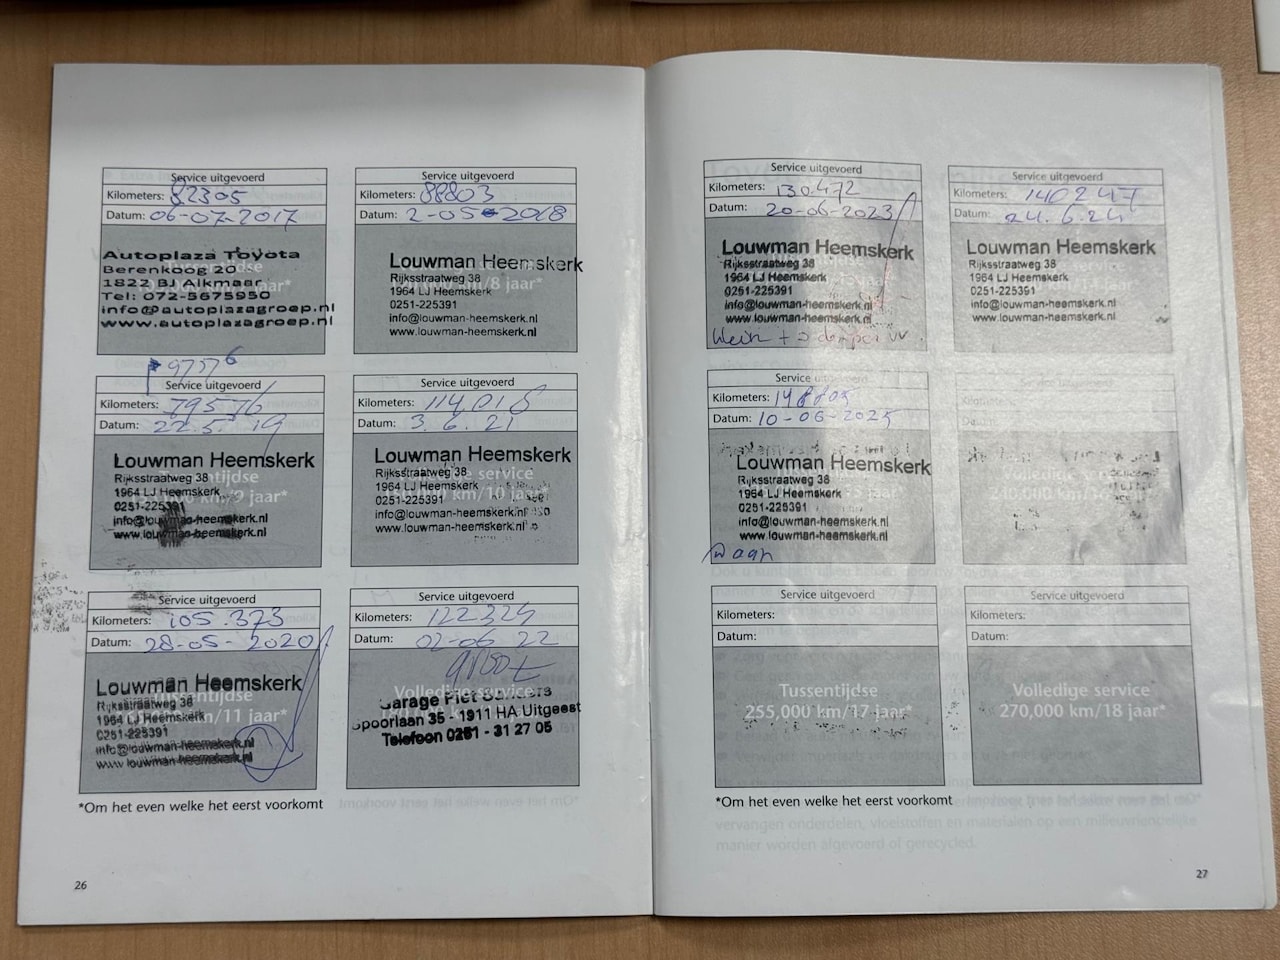 Service uitgevoerd
Kilometers: 82305
Datum: 06-07-2017
Autoplaza Toyota
Berenkoog 20
1822 BJ Alkmaar
Tel: 072-5675950
info@autoplazagroep.nl
www.autoplazagroep.nl
Tussentijdse
Service uitgevoerd
Kilometers: 88803
Datum: 2-05-2018
Louwman Heemskerk
Rijksstraatweg 38
1964 LJ Heemskerk
0251-225391
info@louwman-heemskerk.nl
www.louwman-heemskerk.nl
km/8 jaar*
97576
Service uitgevoerd
Kilometers: 79576
Datum: 22.5.19
Louwman Heemskerk
Rijksstraatweg 38
1964 LJ Heemskerk
0251-225391
info@louwman-heemskerk.nl
www.louwman-heemskerk.nl
Tussentijdse
km/9 jaar*
Service uitgevoerd
Kilometers: 114.018
Datum: 3.6.21
Louwman Heemskerk
Rijksstraatweg 38
1964 LJ Heemskerk
0251-225391
info@louwman-heemskerk.nl
www.louwman-heemskerk.nl
service
km/10 jaar*
Service uitgevoerd
Kilometers: 105.373
Datum: 28-05-2020
Louwman Heemskerk
Rijksstraatweg 38
1964 LJ Heemskerk
0251-225391
info@louwman-heemskerk.nl
www.louwman-heemskerk.nl
Tussentijdse
km/11 jaar*
Service uitgevoerd
Kilometers: 122324
Datum: 02-06 22
Volledige service
Garage Piet
Spoorlaan 35 - 1911 HA Uitgeest
Telefoon 0251 - 31 27 05
*Om het even welke het eerst voorkomt
26
Service uitgevoerd
Kilometers: 130.472
Datum: 20-06-2023
Louwman Heemskerk
Rijksstraatweg 38
1964 LJ Heemskerk
0251-225391
info@louwman-heemskerk.nl
www.louwman-heemskerk.nl
Service uitgevoerd
Kilometers: 140247
Datum: 24.6.24
Louwman Heemskerk
Rijksstraatweg 38
1964 LJ Heemskerk
0251-225391
info@louwman-heemskerk.nl
www.louwman-heemskerk.nl
Service uitgevoerd
Kilometers: 148805
Datum: 10-06-2025
Louwman Heemskerk
Rijksstraatweg 38
1964 LJ Heemskerk
0251-225391
info@louwman-heemskerk.nl
www.louwman-heemskerk.nl
Daan
Service uitgevoerd
Kilometers:
Datum:
Volledige service
240,000 km/16 jaar*
Service uitgevoerd
Kilometers:
Datum:
Tussentijdse
255,000 km/17 jaar*
Service uitgevoerd
Kilometers:
Datum:
Volledige service
270,000 km/18 jaar*
*Om het even welke het eerst voorkomt
vervangen onderdelen, vloeistoffen en materialen op een milieuvriendelijke
manier worden afgevoerd of gerecycled.
27